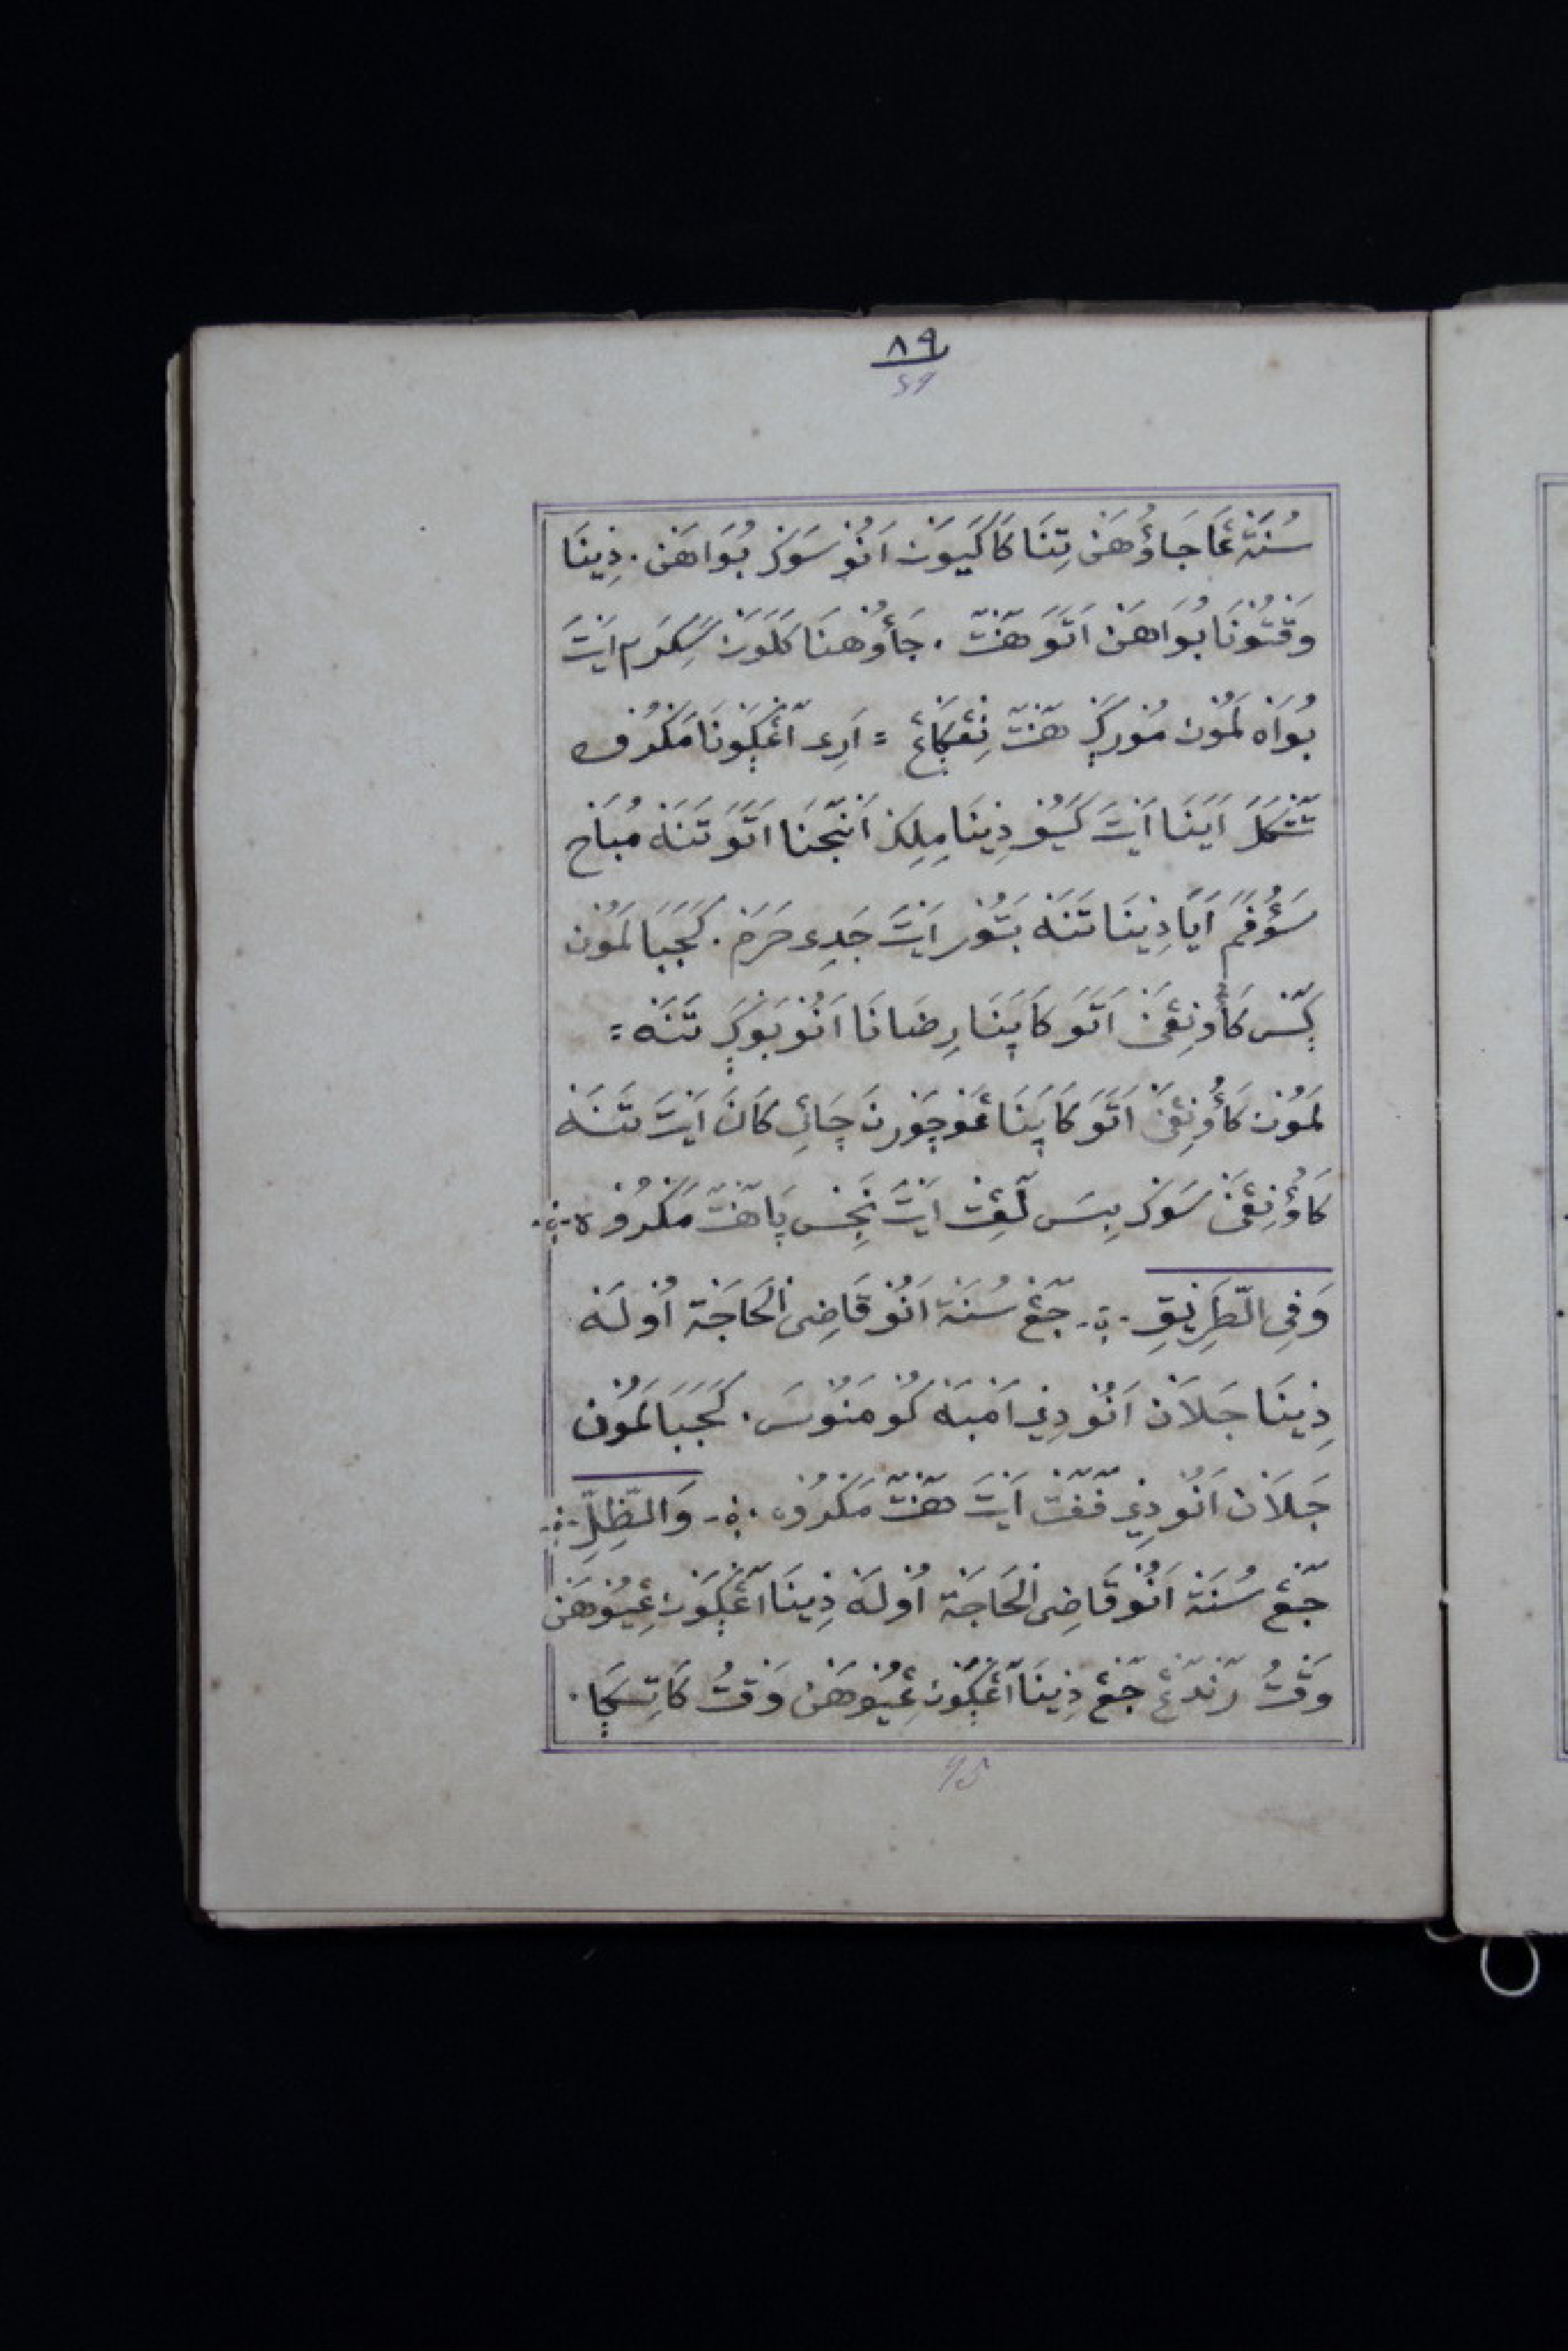 ٨٩
89
سُنَةْ غَا جَاؤُهَنْ تِنَا كَاكَيَوَنْ اَنُوْ سَوَكَرْ بُوَاهَنْ. دِيْنَا
وَقْتُوْنَا بُوَاهَنْ اَتَوَ هَنْتَ. جَأُوْهْنَا كَلَوَنْ سَكَرَم اَيْتَ
بُوَاهْ لَمُوْن مُوْرَكٜيْ هَنْتَ نِڠْكَاغ = اَرِى اَڠْكٜوَنَا مَكْرُوْه
تَتَكَلَ اَيَنَا اَيْتَ كَيُوْ دِيْنَا مِلِكْ اَنْجَنَا اَتَوَ تَنَهْ مُبَاح
سَؤُڤَمَ اَيَا دِيْنَا تَنَهْ بَتُوْر اَيْتَ جَدِى حَرَمْ. كَجَبَا لَمُوْن
كٜنّس كَأُوْنِڠَنْ اَتَوَ كَاپٜنَا رِضَانَا اَنُوْ بَوْكَٜ تَنَهْ =
لَمُوْن كَأُوْنِڠَنْ اَتَوَ كَاپٜنَا غَوْچَوْرنَ چَائِ كَانَ اَيْتَ تَنَهْ
كَاؤُنِڠَنْ سَوَكَرْ بِسَ لَڠِت اَيْتَ نَجِس پَا هَنْتَ مَكْرُوْه
وَفِى الطَّرِيْقِ. جَڠْ سُنَةْ اَنُوْ قَاضِى الْحَاجَةْ اُوْلَهْ
دِيْنَا جَلَانْ اَنُوْ دِيْ اَمْبَهْ كُوْ مَنُوْسَ. كَجَبَا لَمُوْن
جَلَانْ اَنُوْ دِيْ ڤَڤَتْ اَيْتَ هَنْتَ مَكْرُوْه. وَالظِّلِّ
جَڠْ سُنَةْ اَنُوْ قَاضِى الْحَاجَةْ اُوْلَهْ دِيْنَا اَڠْكٜوَنْ غِيُوْهَنْ
وَقْتُ رَنْدَڠْ جَڠْ دِيْنَا اَڠْكٜوَنْ غِيُوْهَنْ وَقْتُ كَاتِݢَا.
95